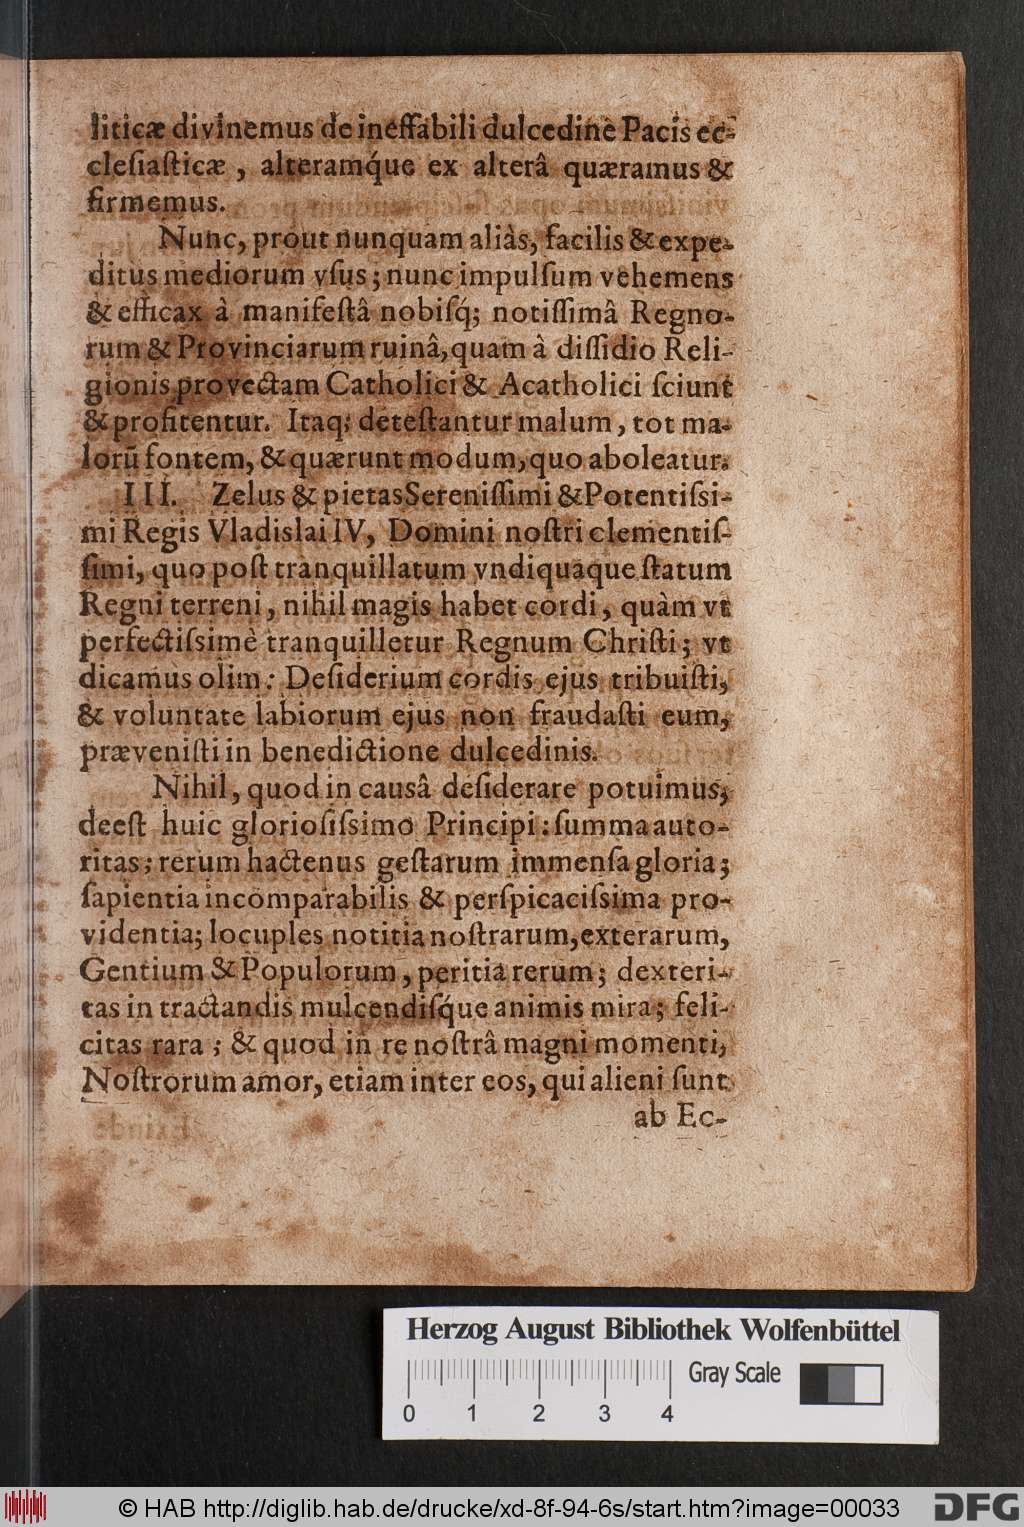 liticæ divinemus de ineffabili dulcedine Pacis ec-
cleſiaſticæ, alteramq́ue ex alterâ quæramus &
firmemus.
Nunc, prout nunquam aliàs, facilis & expe-
ditus mediorum vſus; nunc impulſum vehemens
& efficax à manifeſtâ nobiſq́; notiſſimâ Regno-
rum & Provinciarum ruinâ, quam à diſſidio Reli-
gionis provectam Catholici & Acatholici ſciunt
& profitentur. Itaq; deteſtantur malum, tot ma-
lorũ fontem, & quærunt modum, quo aboleatur.
III. Zelus & pietas Sereniſſimi & Potentiſsi-
mi Regis Vladislai IV, Domini noſtri clementiſ-
ſimi, quo poſt tranquillatum vndiquaque ſtatum
Regni terreni, nihil magis habet cordi, quàm vt
perfectiſsimè tranquilletur Regnum Chriſti; vt
dicamus olim: Deſiderium cordis ejus tribuiſti,
& voluntate labiorum ejus non fraudaſti eum,
præveniſti in benedictione dulcedinis.
Nihil, quod in causâ deſiderare potuimus,
deeſt huic glorioſiſsimo Principi: ſumma auto-
ritas; rerum hactenus geſtarum immenſa gloria;
ſapientia incomparabilis & perſpicaciſsima pro-
videntia; locuples notitia noſtrarum, exterarum,
Gentium & Populorum, peritia rerum; dexteri-
tas in tractandis mulcendiſq́ue animis mira; feli-
citas rara; & quod in re noſtrâ magni momenti,
Noſtrorum amor, etiam inter eos, qui alieni ſunt
ab Ec-
Herzog August Bibliothek Wolfenbüttel
Gray Scale
0 1 2 3 4
© HAB http://diglib.hab.de/drucke/xd-8f-94-6s/start.htm?image=00033
DFG